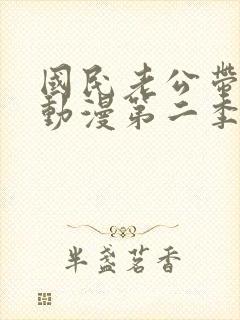 國民老公帶
動漫第二季
半盞茗香